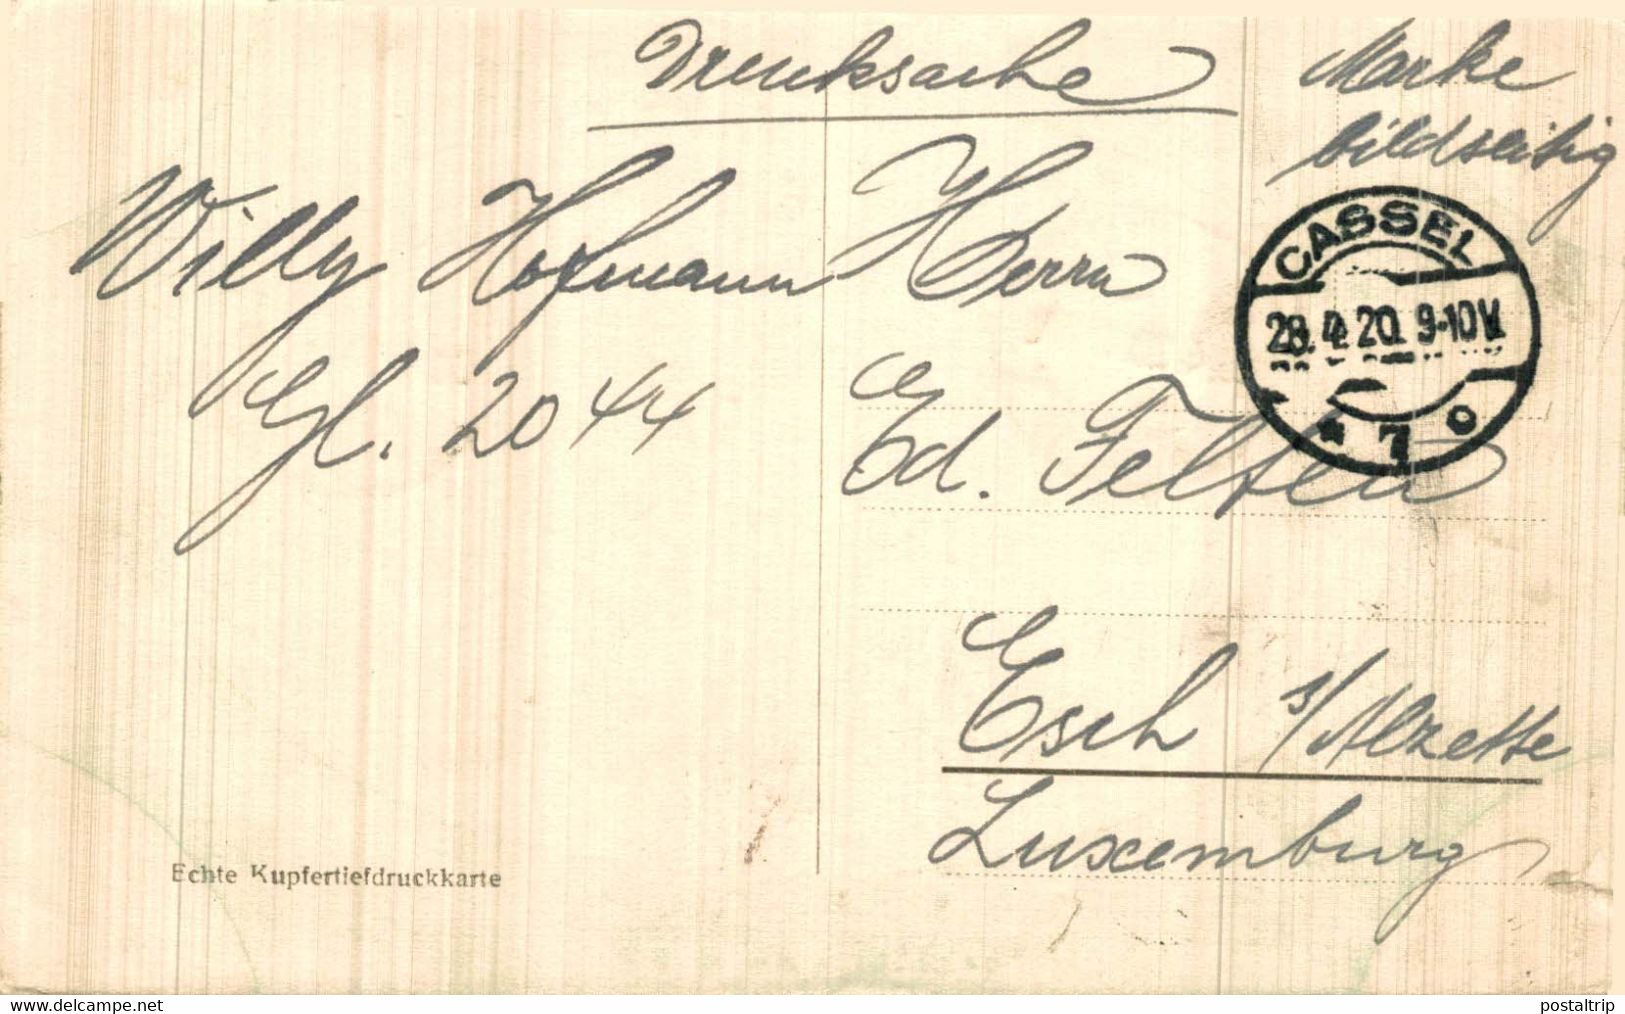 Drucksache
Marke
bildseitig
Willy Hofmann
Gl. 2044
Herrn
Ed. Felten
Esch s/Alzette
Luxemburg
CASSEL
28.4.20. 9-10V.
* 7 o
Echte Kupfertiefdruckkarte
www.delcampe.net
postaltrip